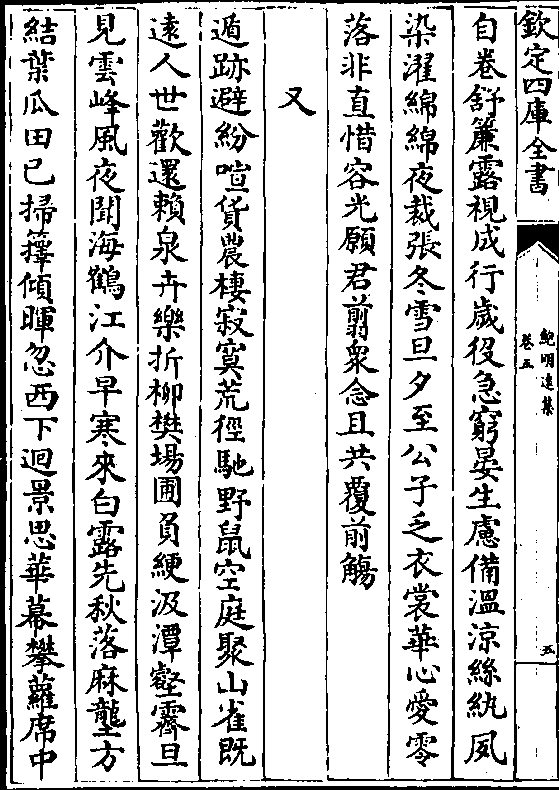 欽定四庫全書
鮑明遠集
卷五
五
自卷舒簾露視成行歲役急窮晏生慮備溫涼絲紈夙
染濯綿綿夜裁張冬雪旦夕至公子乏衣裳華心愛零
落非直惜容光願君翦衆念且共覆前觴
又
遁跡避紛喧貨農棲寂寞荒徑馳野鼠空庭聚山雀既
遠人世歡還賴泉卉樂折柳樊場圃負綆汲潭壑霽旦
見雲峰風夜聞海鶴江介早寒來白露先秋落麻壟方
結葉瓜田已掃籜傾暉忽西下迴景思華幕攀蘿席中